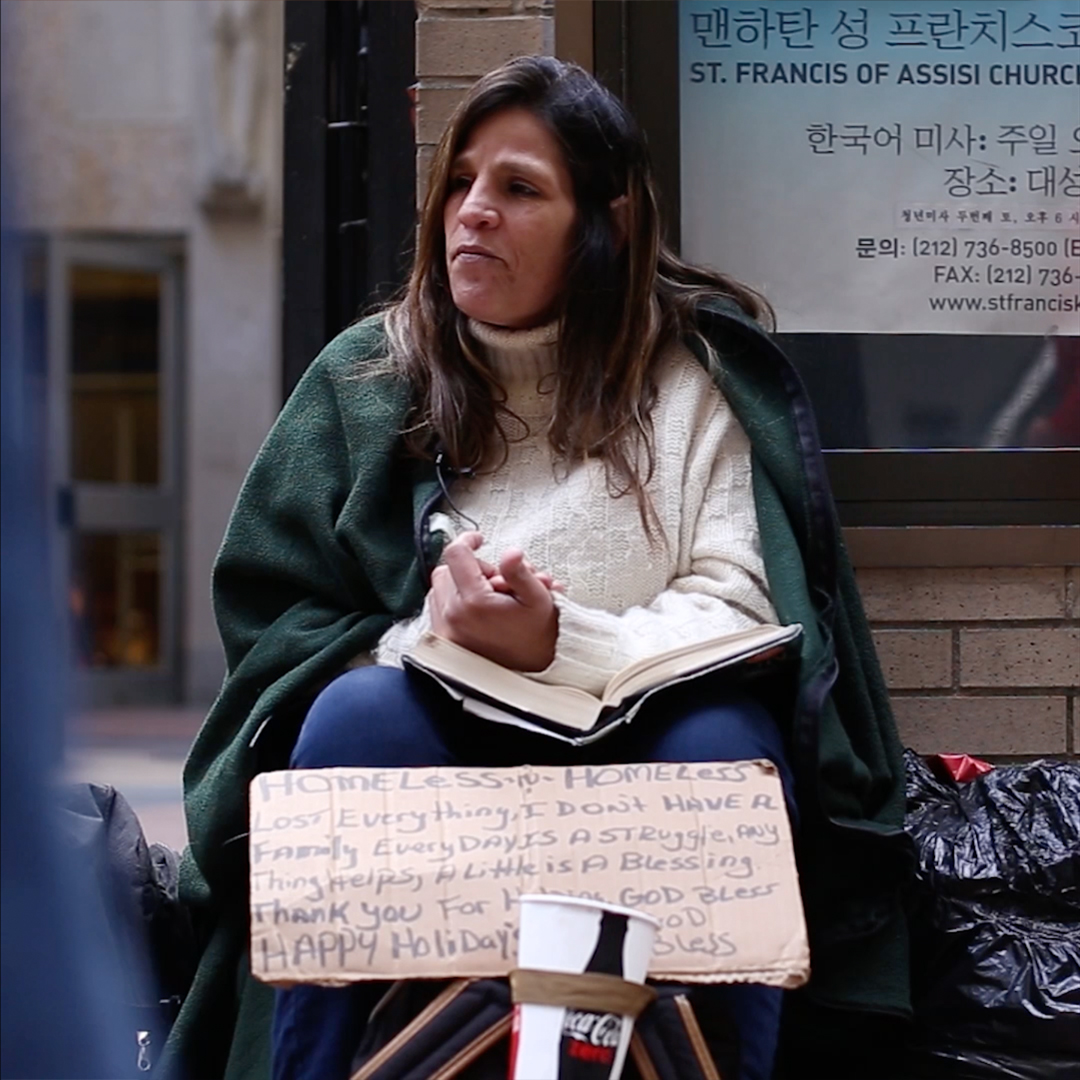 맨하탄 성 프란치스코
ST. FRANCIS OF ASSISI CHURCH
한국어 미사: 주일 오
장소: 대성
청년미사 두번째 토, 오후 6 시
문의: (212) 736-8500 (E
FAX: (212) 736-
www.stfrancisk
HOMELess-N- HOMELess
LOST Everything, I DON't HAVE A
FAMily EveryDAY IS A STRuggle, ANy
Thing Helps, A Little is A Blessing.
THANK you For GOD Bless
HAPPy HoliDays GOD
Bless
Coca-Cola
zero